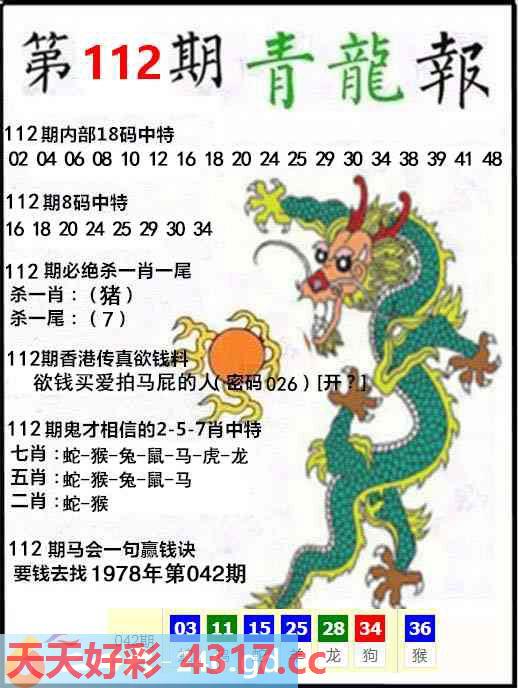 第112期青龍報
112期内部18码中特
02 04 06 08 10 12 16 18 20 24 25 29 30 34 38 39 41 48
112期8码中特
16 18 20 24 25 29 30 34
112期必绝杀一肖一尾
杀一肖:(猪)
杀一尾:(7)
112期香港传真欲钱料
欲钱买爱拍马屁的人(密码026)[开?]
112期鬼才相信的2-5-7肖中特
七肖:蛇-猴-兔-鼠-马-虎-龙
五肖:蛇-猴-兔-鼠-马
二肖:蛇-猴
112期马会一句赢钱诀
要钱去找1978年第042期
03 11 15 25 28 34 36
042期
龙 狗 猴
天天好彩 4317.cc